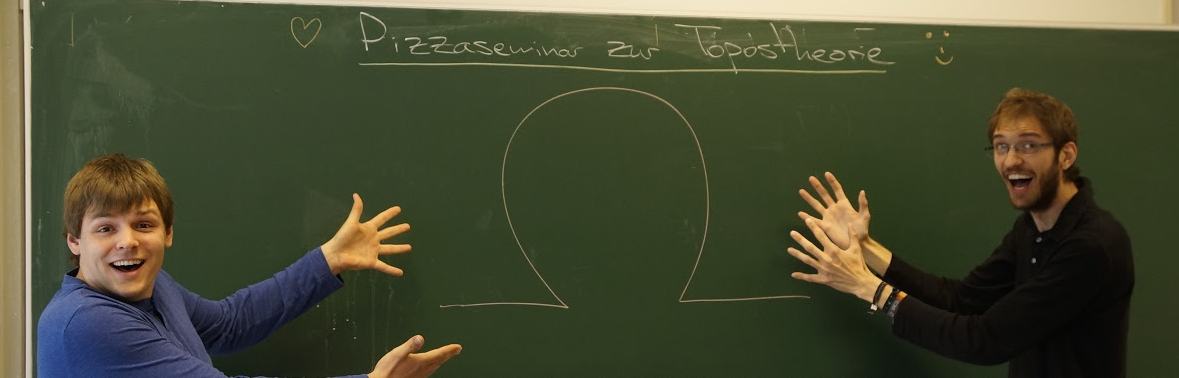 ♡ Pizzaseminar zur Topostheorie :)
Ω